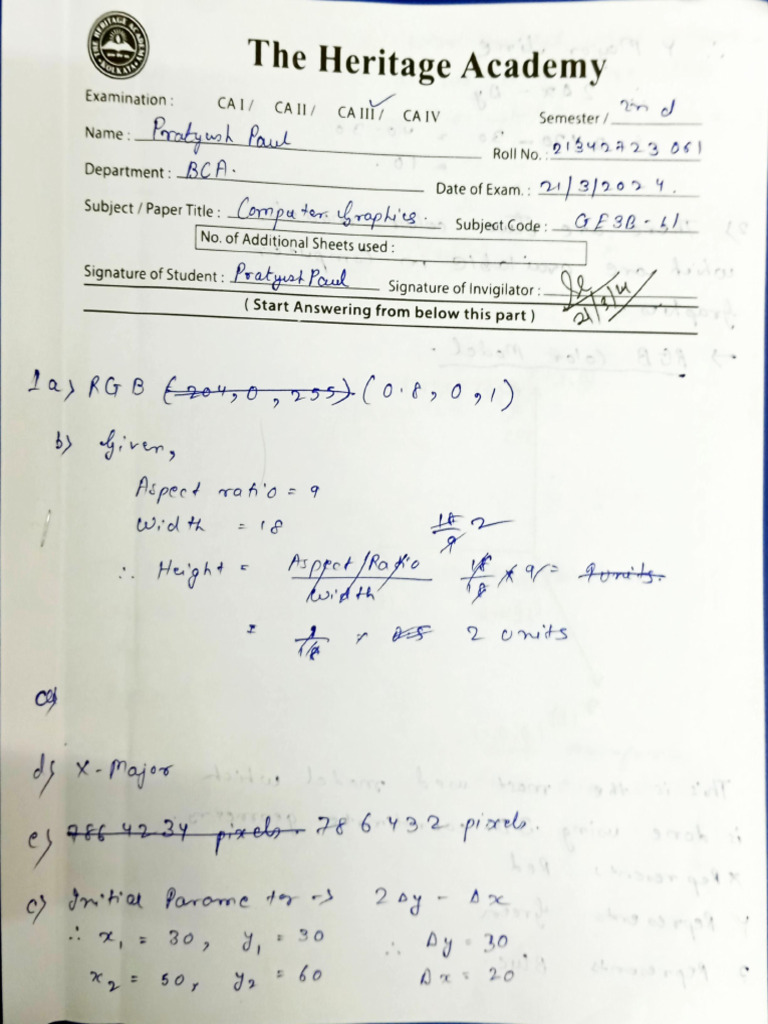 THE HERITAGE ACADEMY
KOLKATA
The Heritage Academy
Examination : CA I / CA II / CA III / ✓ CA IV Semester / 2nd
Name : Pratyush Paul Roll No. : 21342723061
Department : BCA. Date of Exam. : 21/3/2024.
Subject / Paper Title : Computer Graphics. Subject Code : GE3B-
No. of Additional Sheets used :
Signature of Student : Pratyush Paul Signature of Invigilator :
21/3/24
( Start Answering from below this part )
1a) RGB (204, 0, 255). (0.8, 0, 1)
b) Given,
Aspect ratio = 9
Width = 18
18/9 2
∴ Height = Aspect/Ratio / Width 18/18 × 9 = 9 units.
= 2 units
d) X-Major
e) 7864234 pixels. 786432 pixels.
c) Initial Parameter → 2Δy - Δx
∴ x₁ = 30, y₁ = 30 ∴ Δy = 30
x₂ = 50, y₂ = 60 Δx = 20